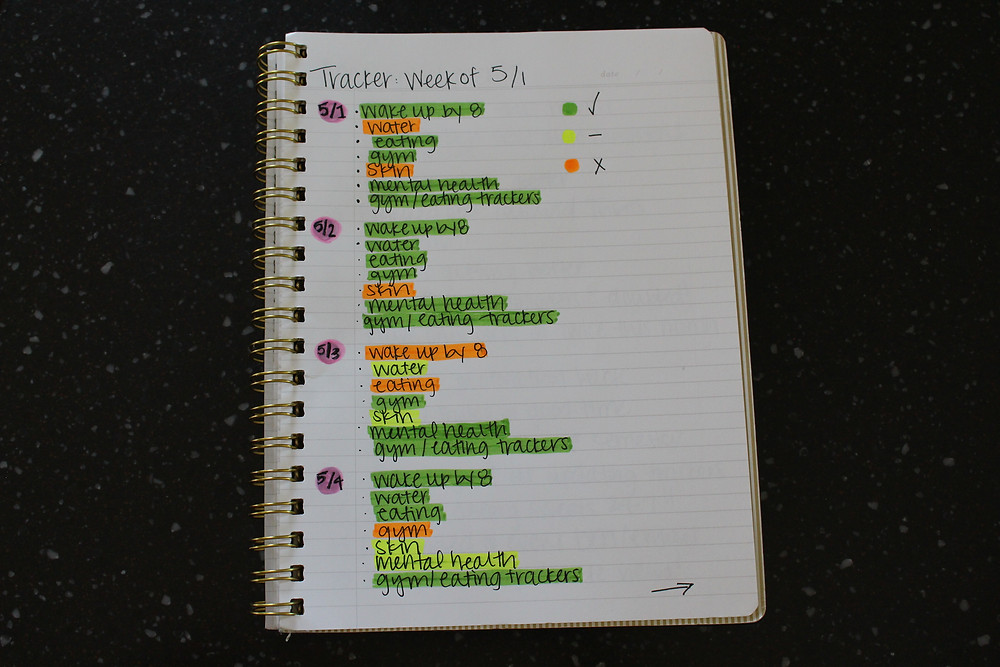 Tracker: Week of 5/1
date / /
5/1 · wake up by 8
· water
· eating
· gym
· skin
· mental health
· gym/eating trackers
✓
–
x
5/2 · wake up by 8
· water
· eating
· gym
· skin
· mental health
· gym/eating trackers
5/3 · wake up by 8
· water
· eating
· gym
· skin
· mental health
· gym/eating trackers
5/4 · wake up by 8
· water
· eating
· gym
· skin
· mental health
· gym/eating trackers
→